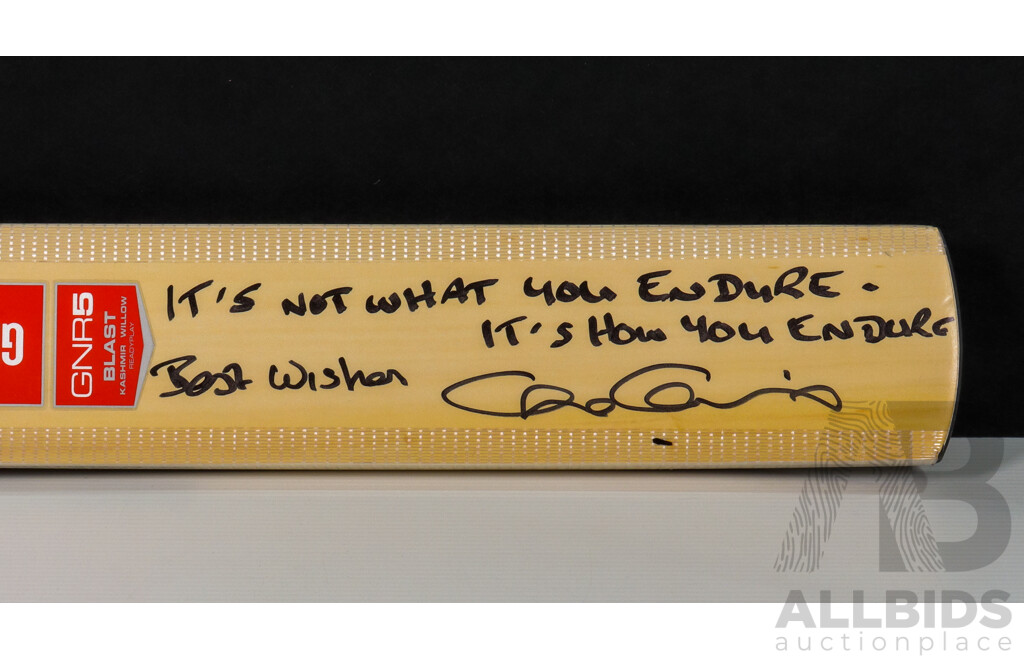 IT'S NOT WHAT YOU ENDURE.
IT'S HOW YOU ENDURE
Best Wishes
GNR5
BLAST
KASHMIR WILLOW
READYPLAY
AB
ALLBIDS
auctionplace